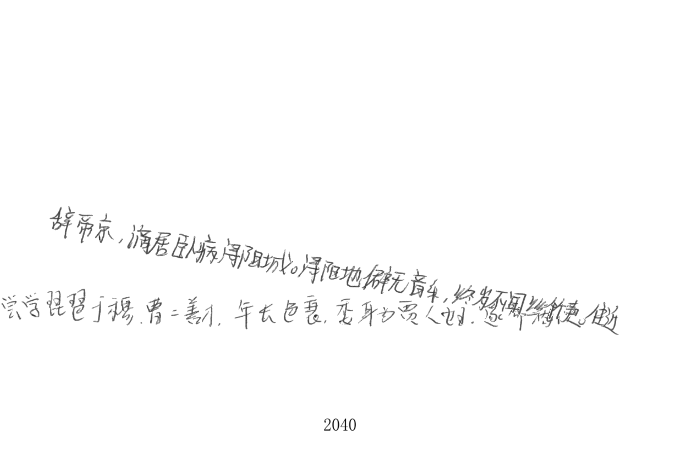 辞帝京，谪居卧病浔阳城。浔阳地僻无音乐，终岁不闻丝竹声。住近
尝学琵琶于穆，曹二善才，年长色衰，委身为贾人妇。遂命酒使
2040